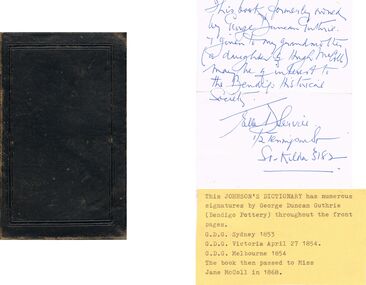 This book formerly owned
by George Duncan Guthrie
& given to my grandmother
(a daughter of Hugh McColl)
may be of interest to
the Bendigo Historical
Society.
Service
1/2 Tennyson St
St. Kilda 3182
This JOHNSON'S DICTIONARY has numerous
signatures by George Duncan Guthrie
(Bendigo Pottery) throughout the front
pages.
G.D.G. Sydney 1853
G.D.G. Victoria April 27 1854.
G.D.G. Melbourne 1854
The book then passed to Miss
Jane McColl in 1868.